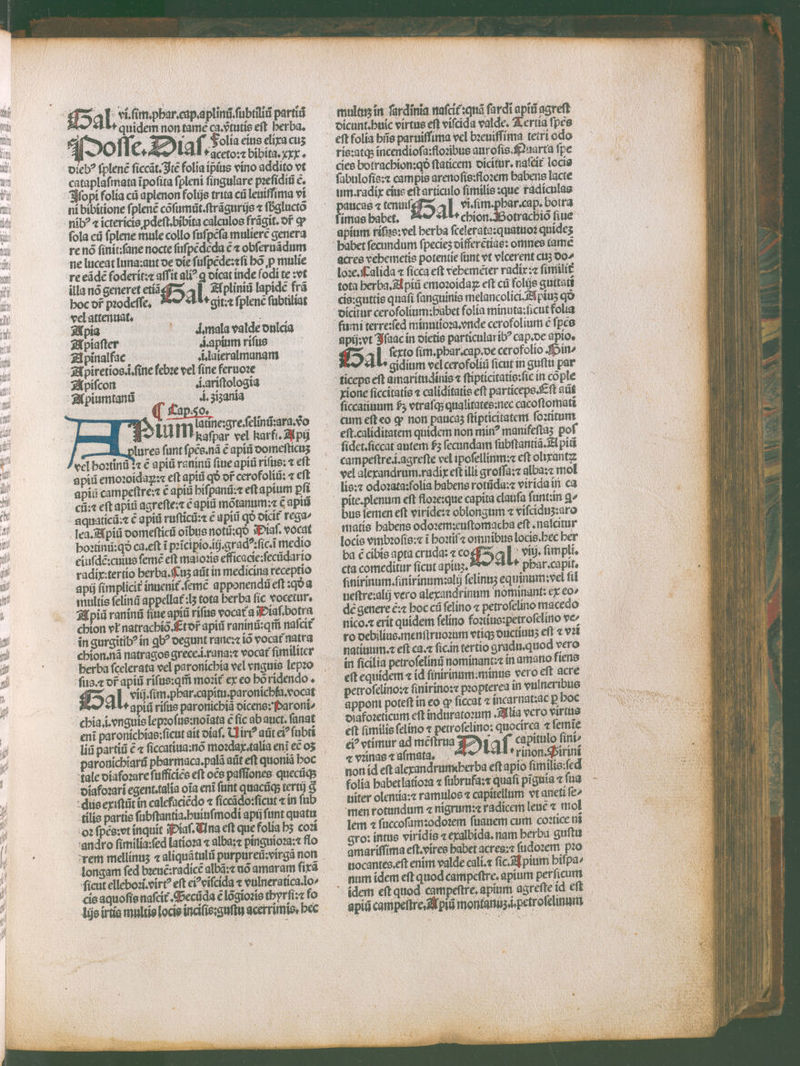 Gal. vi. sim. phar. cap. aplinū. subtiliū partiū
quidem non tamē ca. v̄tutis est herba.
Posse. Dias. Folia eius elixa cuȝ
aceto: ⁊ bibita. xxx.
dieb⁹ splenē siccāt. Itē folia ipsius vino addito vt
cataplasmata īposita spleni singulare presidiū ē.
Isopi folia cū aplenon folijs trita cū leuissima vi
ni bibitione splenē cōsumūt. strāgurijs ⁊ sb̄glucto
nib⁹ ⁊ ictericis ꝓdest. bibita calculos frāgit. dr̄ ꝙ
sola cū splene mule collo suspēsa mulierē genera
re nō sinit: sane nocte suspēdēda ē ⁊ obseruādum
ne luceat luna: aut de die suspēde: ⁊ si hō ꝓ mulie
re eādē foderit: ⁊ assit ali⁹ q̄ dicat inde fodi te: vt
illa nō generet etiā Gal. Apliniū lapidē frā
hoc dr̄ prodesse. git: ⁊ splenē subtiliat
vel attenuat.
Apia .i. mala valde dulcia
Apiaster .i. apium risus
Apinalfae .i. laieralmanam
Apiretios .i. sine febre vel sine feruore
Apiscon .i. aristologia
Apiumtanū .i. zizania
¶ Cap. 50.
Apium latine: gre. selinū: ara. v̄o
kaspar vel karfi. Apij
plures sunt spēs. nā ē apiū domesticuȝ
vel hortinū: ⁊ ē apiū raninū siue apiū risus: ⁊ est
apiū emoroidaꝝ: ⁊ est apiū qd̄ dr̄ cerofoliū: ⁊ est
apiū campestre: ⁊ ē apiū hispanū: ⁊ est apium psi
cū: ⁊ est apiū agreste: ⁊ ē apiū mōtanum: ⁊ ē apiū
aquaticū: ⁊ ē apiū rusticū: ⁊ ē apiū qd̄ dicit̄ rega⸗
lea. Apiū domesticū oībus notū: qd̄ Dias. vocat
hortinū: qd̄ ca. est ī prīcipio. iij. grad⁹: sic. ī medio
eiusdē: cuius semē est maioris efficacie: secūdario
radix: tertio herba. Cuȝ aūt in medicina receptio
apij simplicit̄ inuenit̄. semē apponendū est: qd̄ a
multis selinū appellat̄: lȝ tota herba sic vocetur.
Apiū raninū siue apiū risus vocat̄ a Dias. botra
chion vl̄ natrachiō. Et dr̄ apiū raninū: qm̄ nascit̄
in gurgitib⁹ in qb⁹ degunt rane: ⁊ iō vocat̄ natra
chion. nā natragos grece. i. rana: ⁊ vocat̄ similiter
herba scelerata vel paronichia vel vnguis lepro
sus. ⁊ dr̄ apiū risus: qm̄ morit̄ ex eo hō ridendo.
Gal. viij. sim. phar. capitu. paronichia. vocat
apiū risus paronichiā dicens: Paroni⸗
chia. i. vnguis leprosus: noīata ē sic ab auct. sanat
eni paronichias: sicut ait dias. Uirt⁹ aūt ei⁹ subti
liū partiū ē ⁊ siccatiua: nō mordax. talia eni eē oȝ
paronichiarū pharmaca. palā aūt est quoniā hoc
tale diaforare sufficiēs est oēs passiones quecūqȝ
diaforari egent. talia oīa eni sunt quecūqȝ tertij ḡ
dus existūt in calefaciēdo ⁊ siccādo: sicut ⁊ in sub
tilis partis substantia. huiusmodi apij sunt quatu
or spēs: vt inquit Dias. Una est que folia hȝ cori
andro similia: sed latiora ⁊ alba: ⁊ pinguiora: ⁊ flo
rem mellinuȝ ⁊ aliquātulū purpureū: virgā non
longam sed breuē: radicē albā: ⁊ nō amaram fixā
sicut ellebori. virt⁹ est ei⁹ viscida ⁊ vulneratica. lo⸗
cis aquosis nascit̄. Secūda ē lōgioris thyrsi: ⁊ fo
lijs irtis multis locis incisis: gustu acerrimis. hec
multuȝ in sardinia nascit̄: quā sardi apiū agrest
dicunt. huic virtus est viscida valde. Tertia spēs
est folia hn̄s paruissima vel breuissima tetri odo
ris: atqȝ incendiosa: floribus aurosis. Quarta spe
cies botrachion: qd̄ staticem dicitur. nascit̄ locis
sabulosis: ⁊ campis arenosis: florem habens lacte
um. radix eius est articulo similis: que radiculas
paucas ⁊ tenuis Gal. vi. sim. phar. cap. botra
simas habet. chion. Botrachiō siue
apium risus: vel herba scelerata: quatuor quideȝ
habet secundum specieȝ differētias: omnes tamē
acres vehemetis potentie sunt vt vlcerent cuȝ do⸗
lore. Calida ⁊ sicca est vehemēter radix: ⁊ similit̄
tota herba. Apiū emoroidaꝝ est cū folijs guttati
cis: guttis quasi sanguinis melancolici. Apiuȝ qd̄
dicitur cerofolium: habet folia minuta: sicut folia
fumi terre: sed minutiora. vnde cerofolium ē spēs
apij: vt Isaac in dietis particularib⁹ cap. de apio.
Gal. sexto sim. phar. cap. de cerofolio. Sin⸗
gidium vel cerofoliū sicut in gustu par
ticeps est amaritudinis ⁊ stipticitatis: sic in cōple
xione siccitatis ⁊ caliditatis est particeps. Est aūt
siccatiuum ẜȝ vtrasqȝ qualitates: nec cacostomati
cum est eo ꝙ non paucaȝ stipticitatem sortitum
est. caliditatem quidem non min⁹ manifestaȝ pos
sidet. siccat autem ẜȝ secundam substantiā. Apiū
campestre. i. agreste vel iposellinum: ⁊ est olixantꝝ
vel alexandrum. radix est illi grossa: ⁊ alba: ⁊ mol
lis: ⁊ odorata: folia habens rotūda: ⁊ virida in ca
pite. plenum est flore: que capita clausa sunt: in q⸗
bus semen est viride: ⁊ oblongum ⁊ visciduȝ: aro
matis habens odorem: eustomacha est. nascitur
locis vmbrosis: ⁊ ī hortis ⁊ omnibus locis. hec her
ba ē cibis apta cruda: ⁊ co Gal. viij. simpli.
cta comeditur sicut apiuȝ. phar. capit.
sinirinum. sinirinum: alij selinuȝ equinum: vel sil
uestre: alij vero alexandrinum nominant: ex eo⸗
dē genere ē: ⁊ hoc cū selino ⁊ petroselino macedo
nico. ⁊ erit quidem selino fortius: petroselino ve⸗
ro debilius. menstruorum vtiqȝ ductiuuȝ est ⁊ vri
natiuum. ⁊ est ca. ⁊ sic. in tertio gradu. quod vero
in sicilia petroselinū nominant: ⁊ in amano fiens
est equidem ⁊ id sinirinum: minus vero est acre
petroselino: ⁊ sinirino: ⁊ propterea in vulneribus
apponi potest in eo ꝙ siccat ⁊ incarnat: ac ꝑ hoc
diaforeticum est induratorum. Alia vero virtus
est similis selino ⁊ petroselino: quocirca ⁊ semīe
ei⁹ vtimur ad mēstrua Dias capitulo sini⸗
⁊ vrinas ⁊ asmata. rinon. Sirini
non id est alexandrum herba est apio similis: sed
folia habet latiora ⁊ subrufa: ⁊ quasi piguia ⁊ sua
uiter olentia: ⁊ ramulos ⁊ capitellum vt aneti se⸗
men rotundum ⁊ nigrum: ⁊ radicem leuē ⁊ mol
lem ⁊ succosam: odorem suauem cum cortice ni
gro: intus viridis ⁊ exalbida. nam herba gustu
amarissima est. vires habet acres: ⁊ sudorem pro
uocantes. est enim valde cali. ⁊ sic. Apium hispa⸗
num idem est quod campestre. apium persicum
idem est quod campestre. apium agreste id est
apiū campestre. Apiū montanuȝ. i. petroselinum